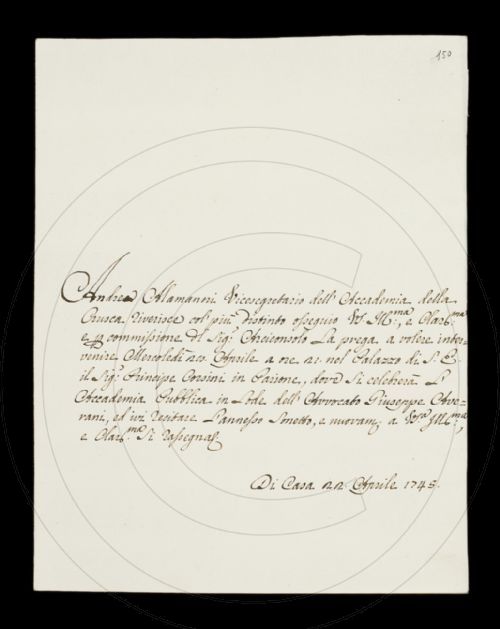 150
Andrea Alamanni Vicesegretario dell' Accademia della
Crusca riverisce col più distinto ossequio V. S. Ill.ma, e Clar.ma
e p commissione del Sig.r Arciconsolo La prega a volere inter=
venire Mercoledì Aprile a ore 21 nel Palazzo di S. E.
il Sig.r Principe Corsini in Parione, dove si celebrerà l'
Accademia Pubblica in Lode dell' Avvocato Giuseppe Ave=
rani, ed ivi recitare l'annesso Sonetto, e nuovam.e a V. S. Ill.ma,
e Clar.ma si rassegna
Di Casa 22 Aprile 1745.